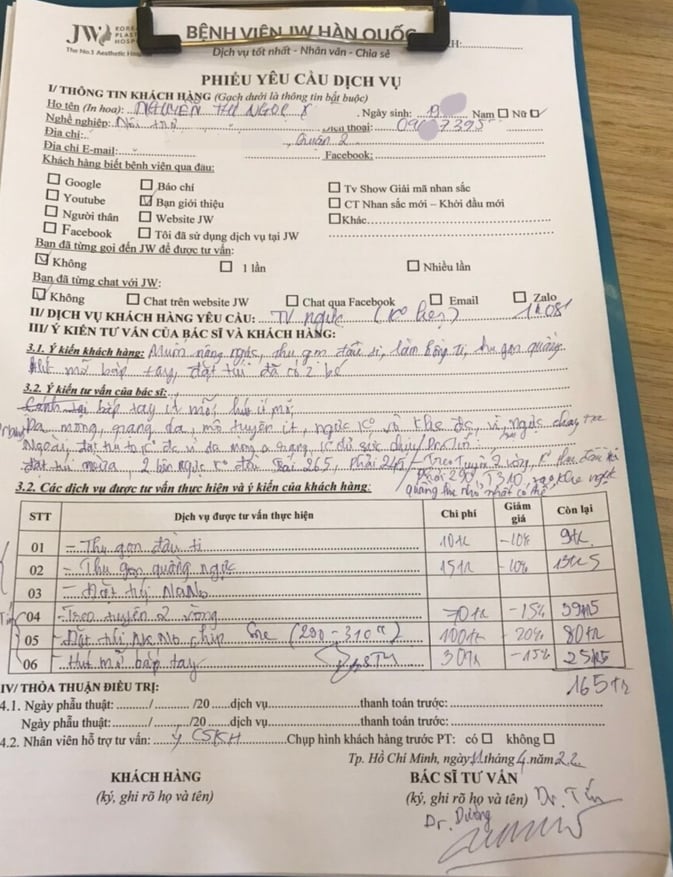 JW KOREA
PLAST
HOSP
The No.1 Aesthetic Ho
BỆNH VIỆN JW HÀN QUỐC
Dịch vụ tốt nhất - Nhân văn - Chia sẻ
H:
PHIẾU YÊU CẦU DỊCH VỤ
I/ THÔNG TIN KHÁCH HÀNG (Gạch dưới là thông tin bắt buộc)
Họ tên (In hoa): NGUYỄN THỊ NGỌC Ngày sinh: 19 Nam ☐ Nữ ☑
Nghề nghiệp: Nội trợ thoại:
Địa chỉ: Quận 2
Địa chỉ E-mail: Facebook:
Khách hàng biết bệnh viện qua đâu:
☐ Google ☐ Báo chí ☐ Tv Show Giải mã nhan sắc
☐ Youtube ☑ Bạn giới thiệu ☐ CT Nhan sắc mới – Khởi đầu mới
☐ Người thân ☐ Website JW ☐ Khác
☐ Facebook ☐ Tôi đã sử dụng dịch vụ tại JW
Bạn đã từng gọi đến JW để được tư vấn:
☑ Không ☐ 1 lần ☐ Nhiều lần
Bạn đã từng chat với JW:
☑ Không ☐ Chat trên website JW ☐ Chat qua Facebook ☐ Email ☐ Zalo
II/ DỊCH VỤ KHÁCH HÀNG YÊU CẦU: TV ngực (k° hẹn)
III/ Ý KIẾN TƯ VẤN CỦA BÁC SĨ VÀ KHÁCH HÀNG:
3.1. Ý kiến khách hàng: Muốn nâng ngực, thu gọn đầu ti, làm hồng ti, thu gọn quầng
Hút mỡ bắp tay, đặt túi đã có 2 bé
3.2. Ý kiến tư vấn của bác sĩ:
bắp tay ít mỡ, hút ít mỡ
Da mỏng, giang da, mô tuyến ít, ngực k° vô khe đc, vì ngực chạy ra
Ngoài, đặt túi to k° đc vì da mỏng
đặt túi 2 bên ngực k° đều Trái 265, Phải 245 Treo tuyến 2 vòng, k° thu đầu ti
Phải 290, T 310, tạo khe ngực
quầng thu nhỏ nhất có thể
3.2. Các dịch vụ được tư vấn thực hiện và ý kiến của khách hàng:
STT Dịch vụ được tư vấn thực hiện Chi phí Giảm giá Còn lại
01 - Thu gọn đầu ti 10tr -10% 9tr
02 - Thu gọn quầng ngực 15tr -10% 13tr5
03 - Đặt túi NaNo
04 - Treo tuyến 2 vòng 70tr -15% 59tr5
05 - Đặt túi NaNo chip (290-310cc) 100tr -20% 80tr
06 - Hút mỡ bắp tay 30tr -15% 25tr5
165tr
IV/ THỎA THUẬN ĐIỀU TRỊ:
4.1. Ngày phẫu thuật: ......../......../20 .....dịch vụ thanh toán trước:
Ngày phẫu thuật: ......../......../20 .....dịch vụ thanh toán trước:
4.2. Nhân viên hỗ trợ tư vấn: Ý CSKH Chụp hình khách hàng trước PT: có ☐ không ☐
Tp. Hồ Chí Minh, ngày 11 tháng 4 năm 22
KHÁCH HÀNG BÁC SĨ TƯ VẤN
(ký, ghi rõ họ và tên) (ký, ghi rõ họ và tên) Dr. Tấn
Dr. Dương